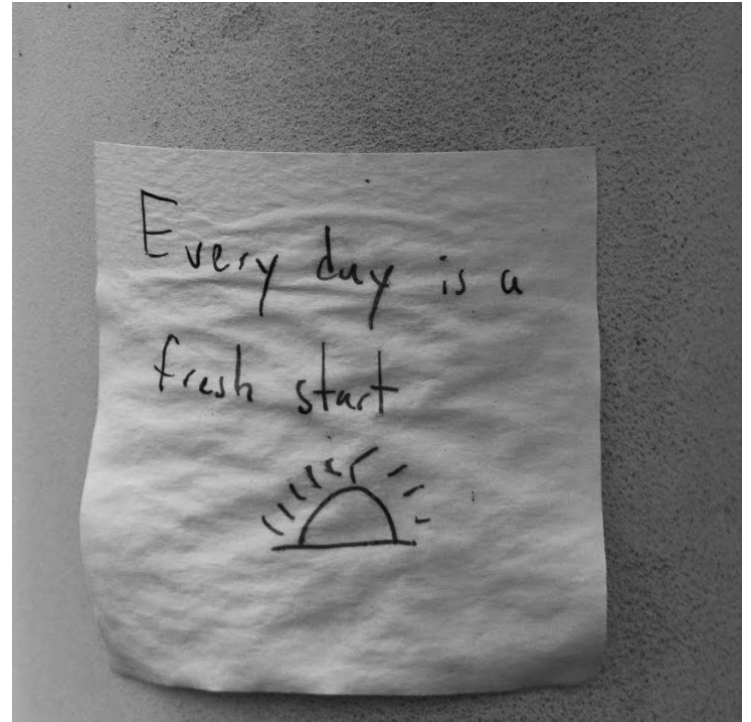 Every day is a
fresh start